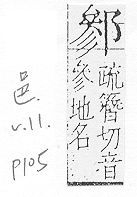 疏簪切音
參地名
邑.
v.11.
p105